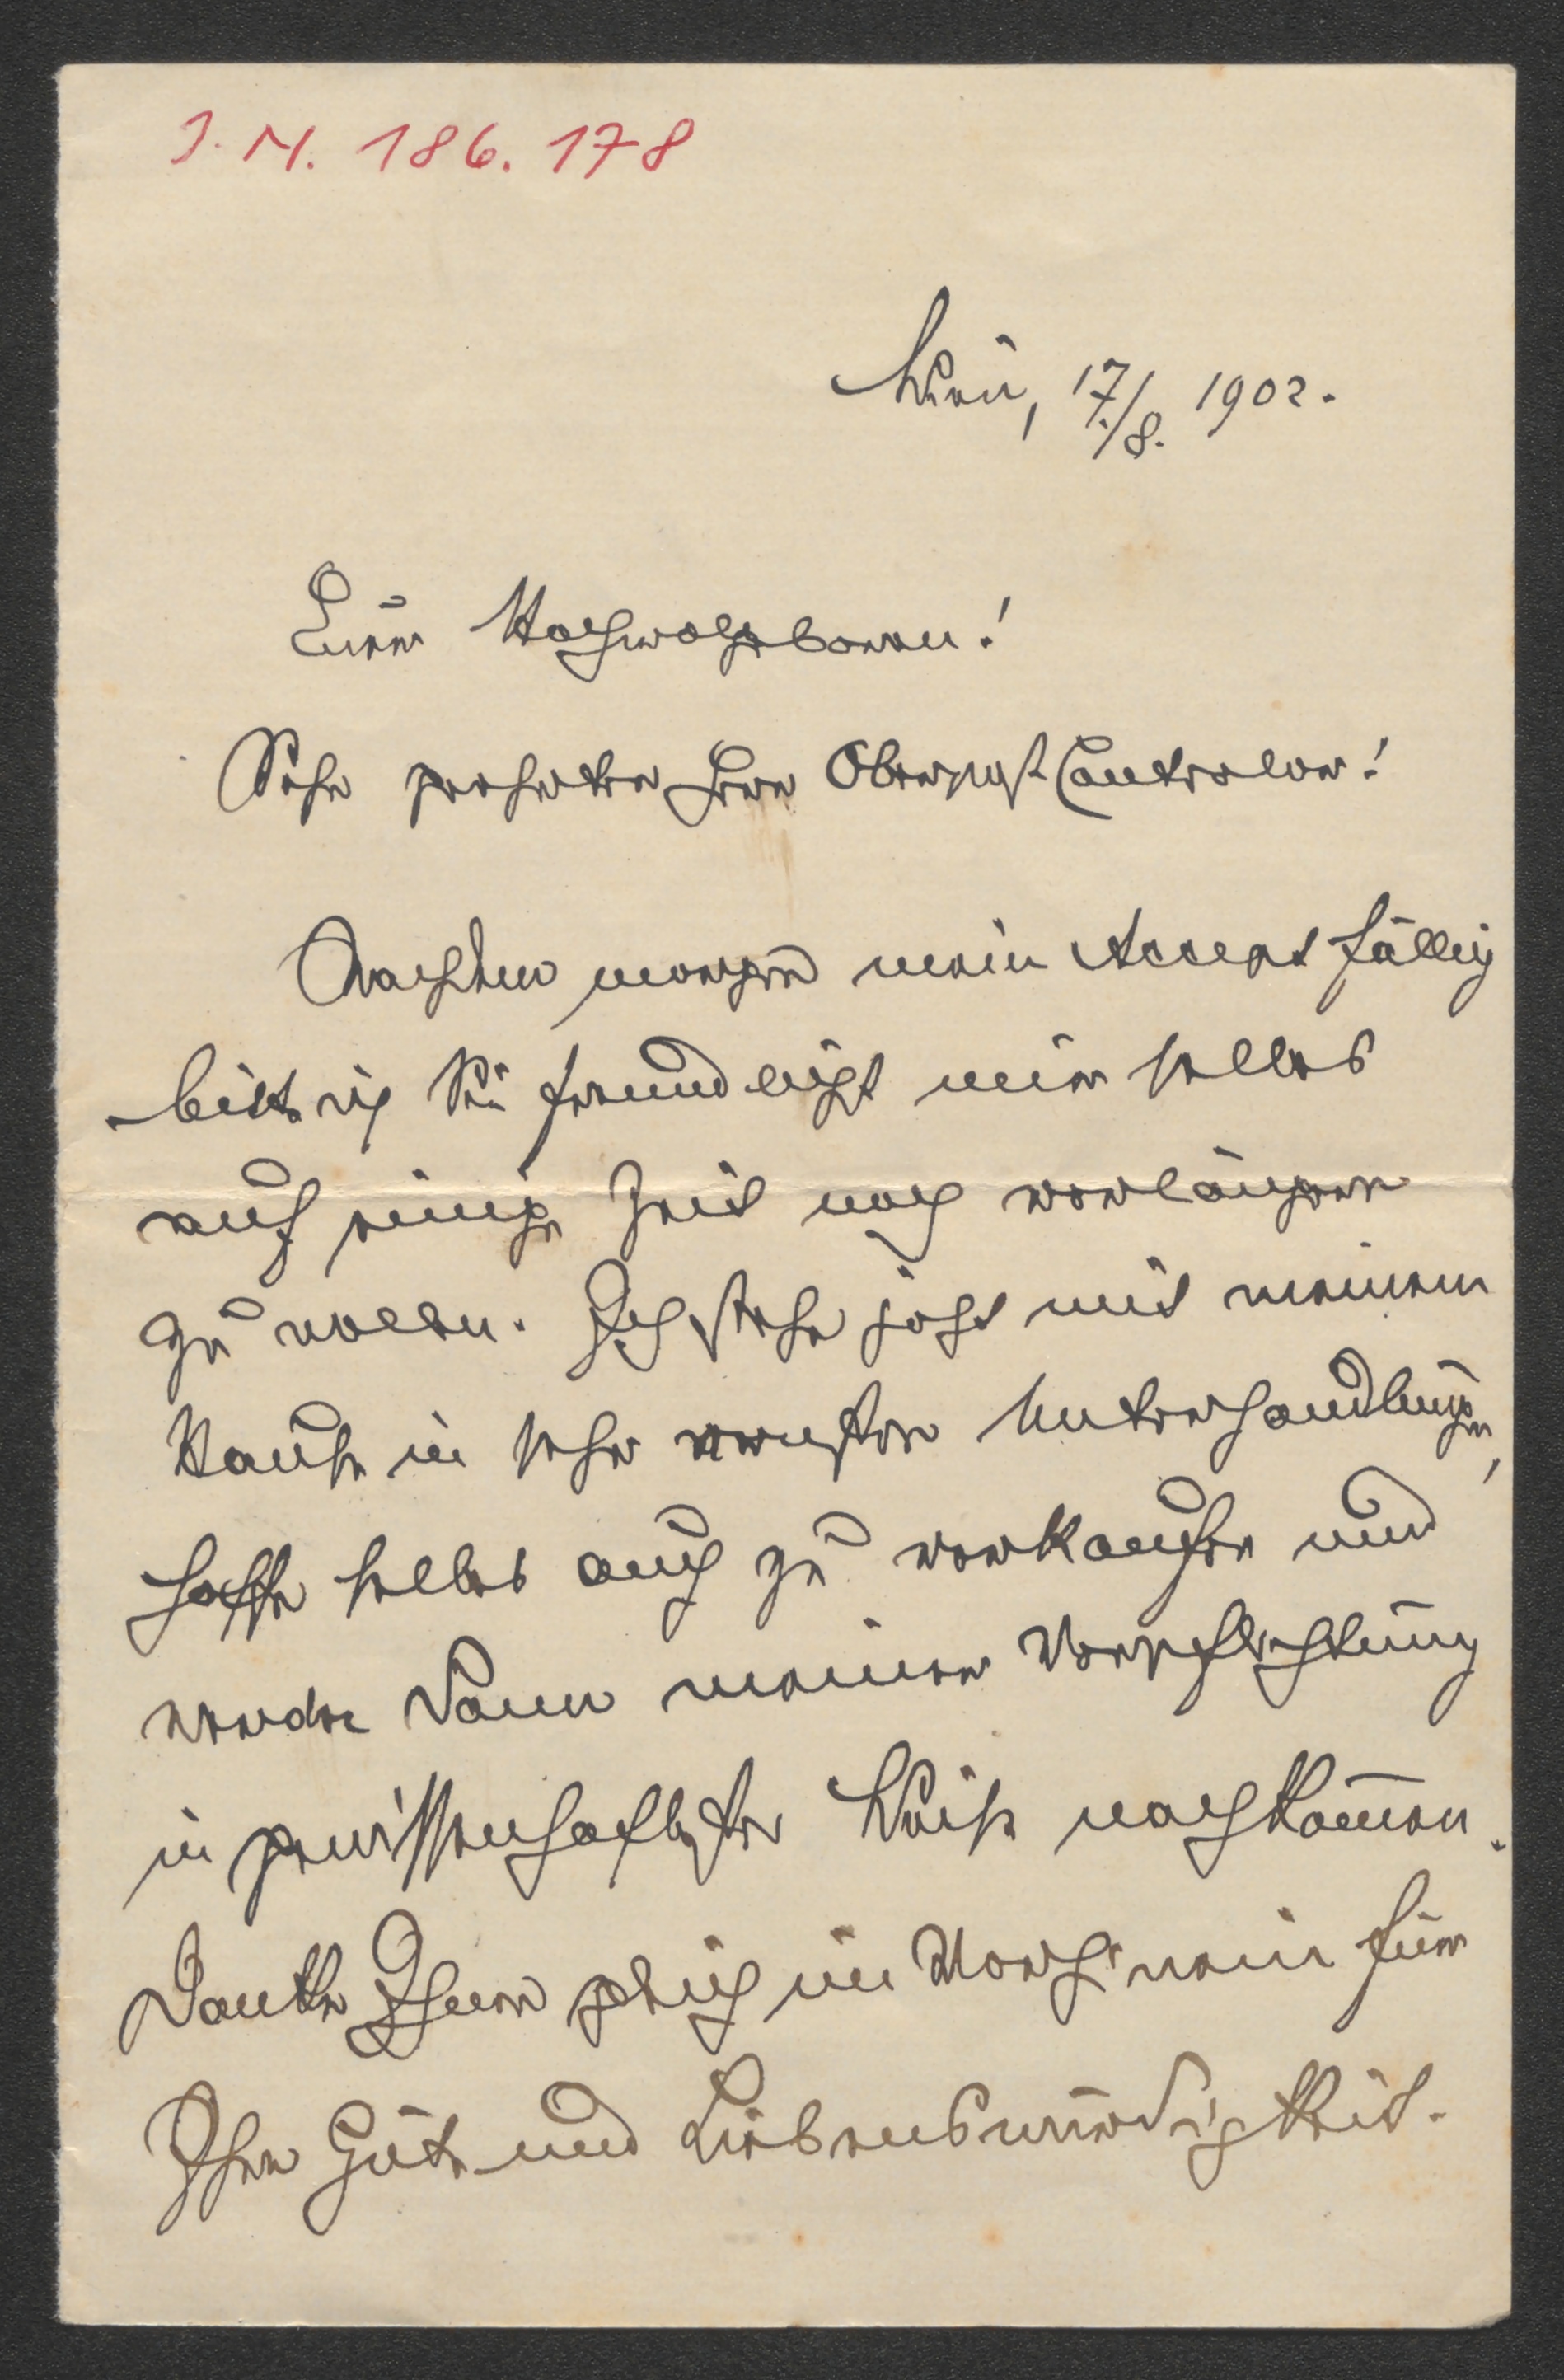 J. N. 186.178
Wien, 17./8. 1902.
Euer Hochwolgeboren!
Sehr geehrter Herr Oberpost Controlor!
Nachdem morgen mein Accept fällig
bitte ich Sie freundlichst mir selbes
auf einige Zeit noch verlängern
zu wollen. Ich stehe jetzt mit meinem
Hause in sehr ernsten Unterhandlungen,
hoffe selbes auch zu verkaufen und
werde dann meiner Verpflichtung
in gewissenhaftester Weise nachkommen.
Danke Ihnen gleich im Vorhinein für
Ihre Güte und Liebenswürdigkeit.